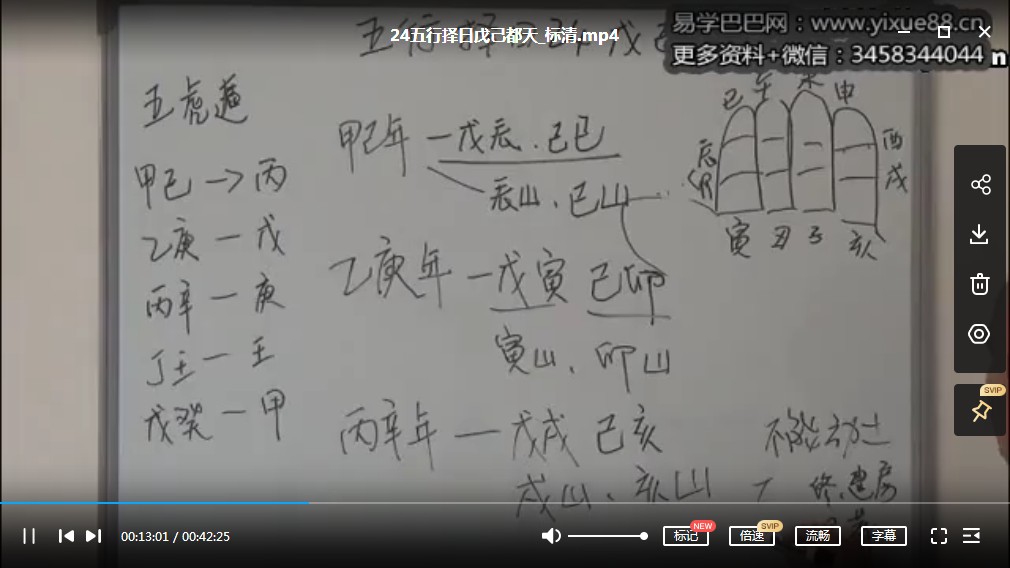 易学巴巴网：www.yixue88.cn
更多资料+微信：3458344044
24五行择日戊己都天_标清.mp4
五行择日
五虎遁
甲己→丙
乙庚一戊
丙辛一庚
丁壬一壬
戊癸一甲
甲己年一戊辰.己巳
辰山、巳山
乙庚年一戊寅 己卯
寅山、卯山
丙辛年一戊戌 己亥
戌山、亥山
巳 午 未 申
辰 酉
卯 戌
寅 丑 子 亥
不能动土
修.建房
SVIP
00:13:01 / 00:42:25
标记 NEW
倍速 SVIP
流畅
字幕